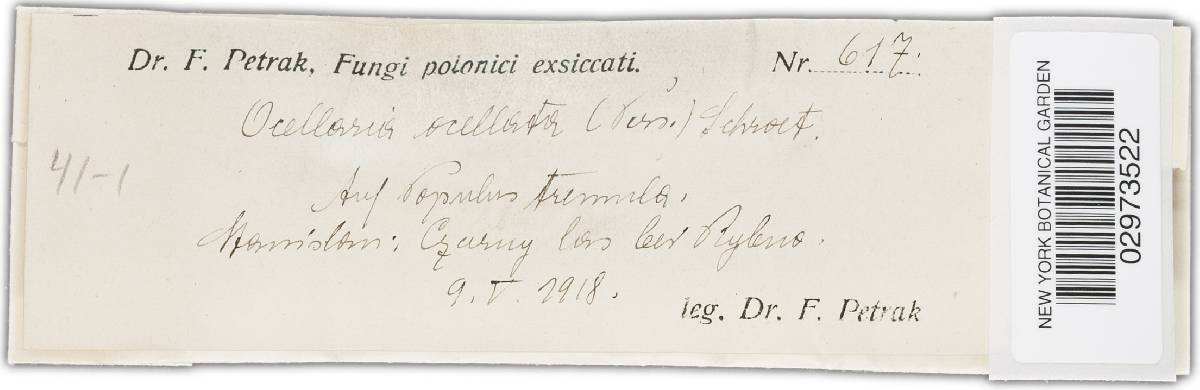 Dr. F. Petrak, Fungi polonici exsiccati. Nr. 617.
Ocellaria ocellata (Pers.) Schroet.
41-1
Auf Populus tremula.
Stanislau: Czarny las bei Rybno.
9. V. 1918.
leg. Dr. F. Petrak
NEW YORK BOTANICAL GARDEN
02973522